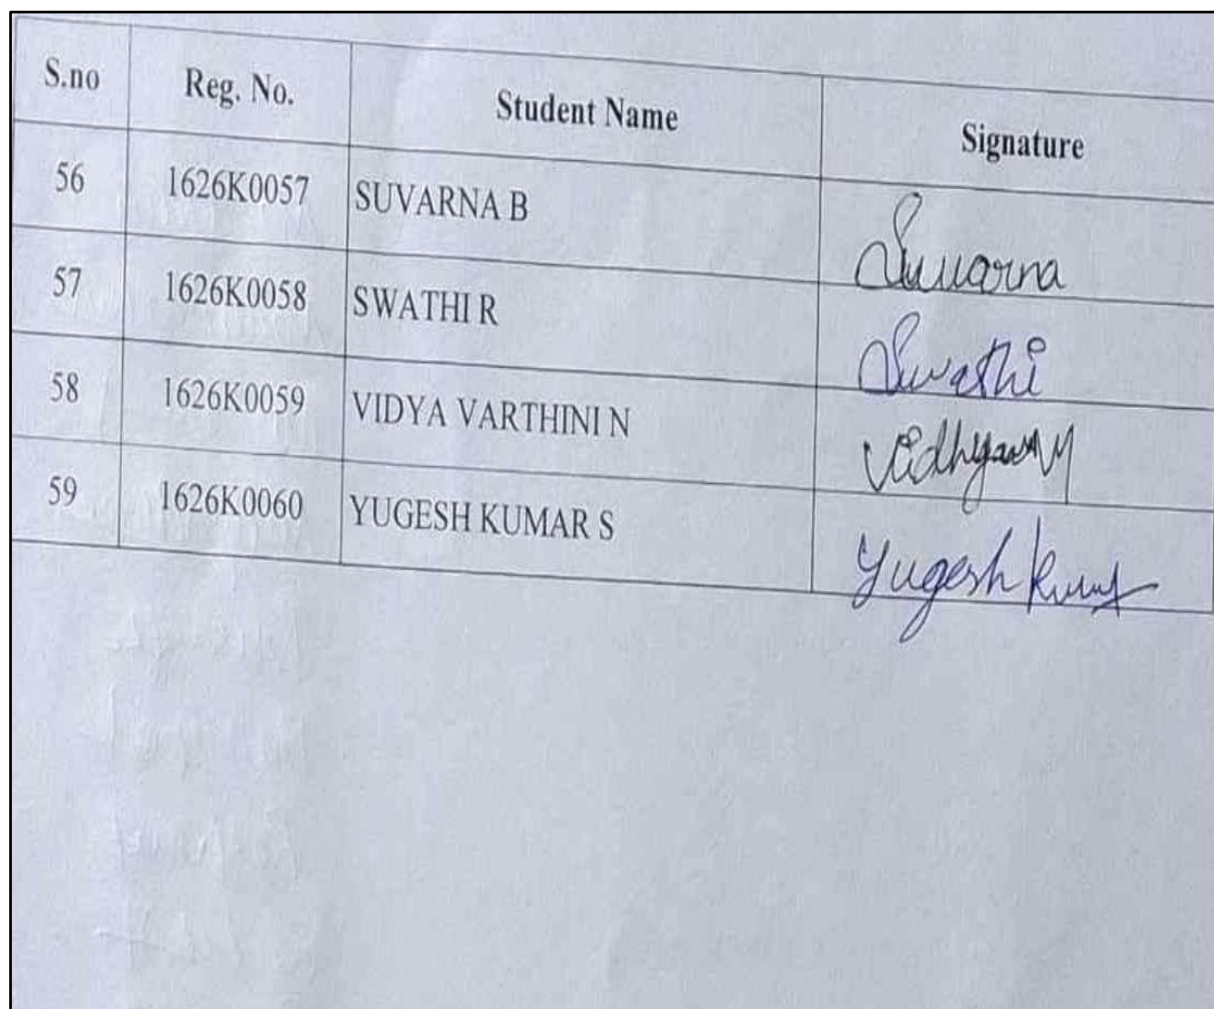 S.no Reg. No. Student Name Signature
56 1626K0057 SUVARNA B Suvarna
57 1626K0058 SWATHI R Swathi
58 1626K0059 VIDYA VARTHINI N
59 1626K0060 YUGESH KUMAR S Yugesh